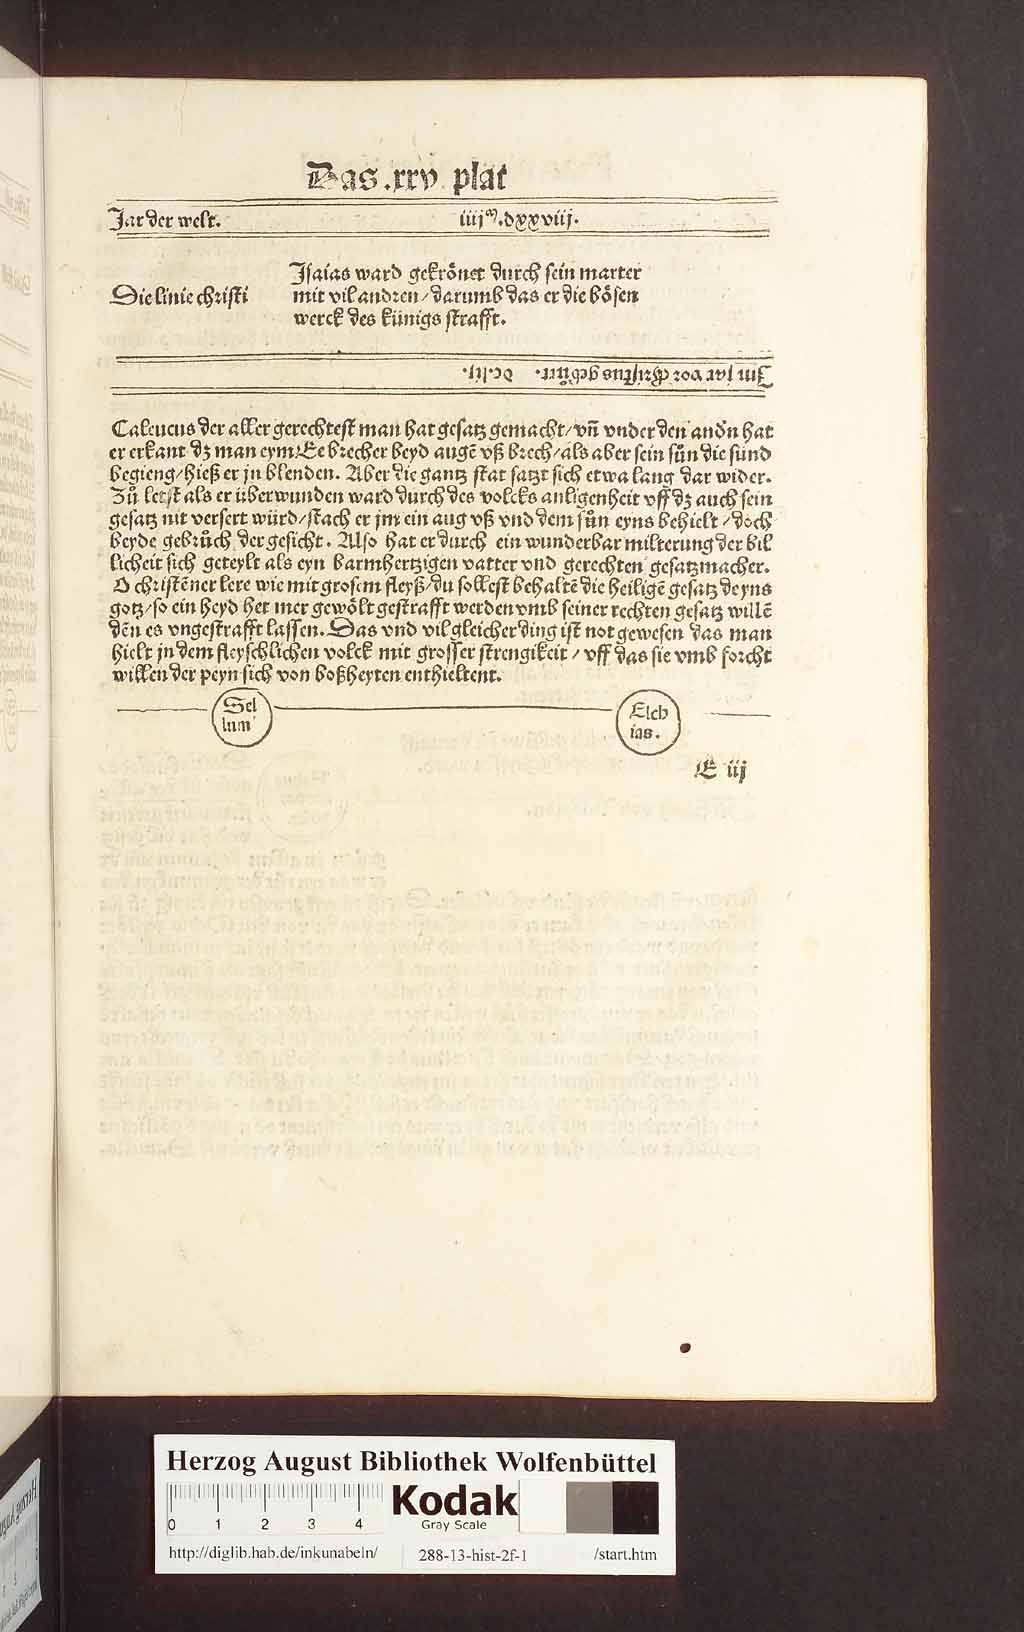 Das .xxv. plat
Jar der welt. iiijᵐ.dxxviij.
Jsaias ward gekrönet durch sein marter
Die linie christi mit vil andren/darumb das er die bösen
werck des künigs strafft.
Im jar vor christus gebůrt. dc.lxxj.
Caleucus der aller gerechtest man hat gesatz gemacht/vn̄ vnder den andn̄ hat
er erkant dz man eym Eebrecher beyd augē vß brech/als aber sein sůn die sünd
begieng/hieß er jn blenden. Aber die gantz stat satzt sich etwa lang dar wider.
Zů letst als er überwunden ward durch des volcks anligenheit vff dz auch sein
gesatz nit versert würd/stach er jm ein aug vß vnd dem sůn eyns behielt/doch
beyde gebrůch der gesicht. Also hat er durch ein wunderbar milterung der bil
licheit sich geteylt als eyn barmhertzigen vatter vnd gerechten gesatzmacher.
O christēner lere wie mit grosem fleyß/du sollest behaltē die heiligē gesatz deyns
gotz/so ein heyd het mer gewölt gestrafft werden vmb seiner rechten gesatz willē
dēn es vngestrafft lassen. Das vnd vil gleicher ding ist not gewesen das man
hielt jn dem fleyschlichen volck mit grosser strengikeit/vff das sie vmb forcht
willen der peyn sich von boßheyten enthieltent.
Sel
lum
Elch
ias.
E iij
Herzog August Bibliothek Wolfenbüttel
Kodak
Gray Scale
0 1 2 3 4
http://diglib.hab.de/inkunabeln/ 288-13-hist-2f-1 /start.htm